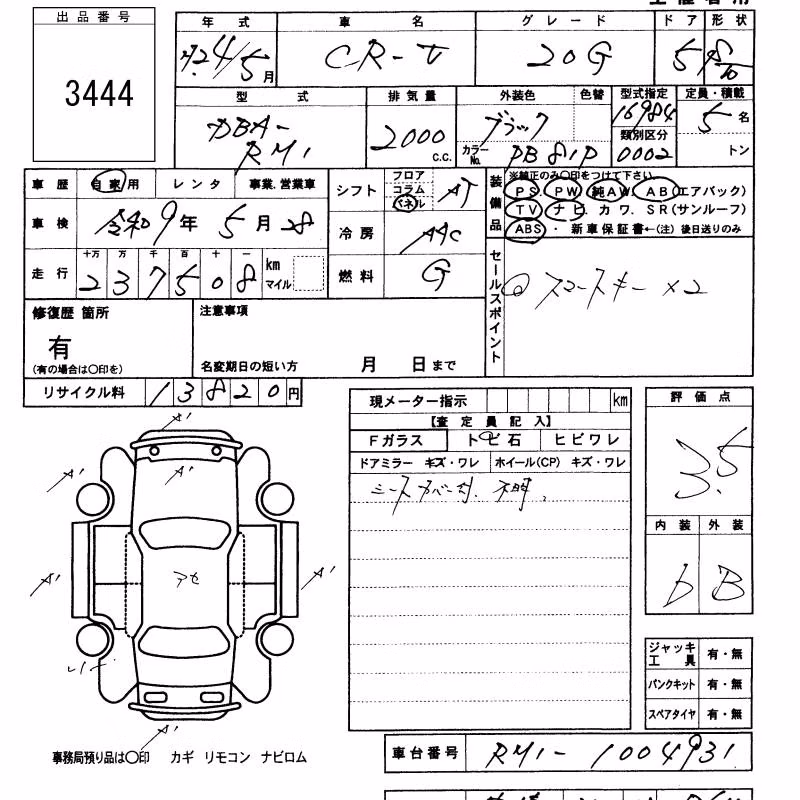 出品番号
3444
年式
車名
グレード
ドア
形状
H24/5月
CR-V
20G
5
5/10
型式
排気量
外装色
色替
型式指定
定員・積載
DBA-
RM1
2000
c.c.
ブラック
カラーNo.
16984
類別区分
0002
5名
トン
車歴
自家用
レンタ
事業、営業車
シフト
フロア
コラム
パネル
AT
装備品
※純正のみ〇印をつけて下さい。
PS PW 純AW. AB(エアバック)
TV ナビ. カワ. SR(サンルーフ)
ABS・新車保証書←(注) 後日送りのみ
車検
令和9年5月28
冷房
AAC
走行
十万 万 千 百 十 一
237508
km
マイル
燃料
G
セールスポイント
スマートキー×2
修復歴 箇所
有
(有の場合は〇印を)
注意事項
名変期日の短い方 月 日まで
リサイクル料
13820円
現メーター指示
km
【査定員記入】
Fガラス
トビ石
ヒビワレ
ドアミラー キズ・ワレ
ホイール(CP) キズ・ワレ
シートカバー付. 不明.
評価点
3.5
内装
外装
b
B
A'
A'
A'
A'
A'
A'
アセ
A'
ジャッキ
工具
有・無
パンクキット
有・無
スペアタイヤ
有・無
事務局預り品は〇印 カギ リモコン ナビロム
車台番号
RM1-1004931